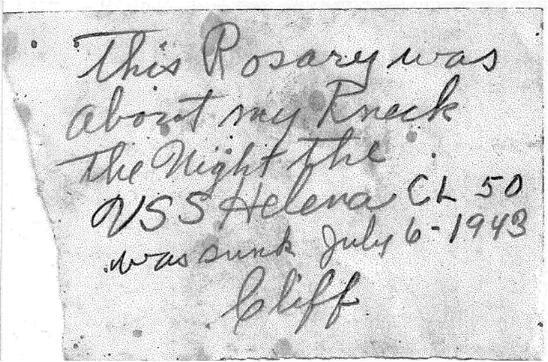 This Rosary was
about my Kneck
the Night the
USS Helena CL 50
was sunk July 6-1943
Cliff